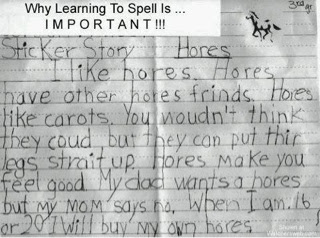 Why Learning To Spell Is ...
I M P O R T A N T !!!
3rd gr
Sticker Story Hores
I like hores. Hores
have other hores frinds. Hores
like carots. You woudn't think
they coud, but they can put thir
legs strait up. Hores make you
feel good. My dad wants a hores
but my mom says no. When I am 16
or 20 I will buy my own hores